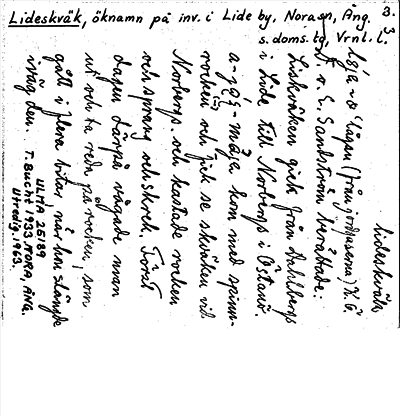 Lideskväk, öknamn på inv. i Lide by, Nora sn, Ång. 3.
s. doms. tg, Vrnl. l.
lideskväk
(från jordägarna) K. G.
L. o. E. Sandström berättade:
Lidskväken gick från Dahlbergs
i Lide till Norbergs i Östanö.
kom med spinn-
rocken och gick se skväken vid
Norbergs. och kastade rocken
och sprang och skrek. Först
dagen därpå vågade man
ut och ta reda på rocken, som
gått i flera bitar, när hon slängde
iväg den. T. Bucht 1933 NORA, ÅNG.
ULMA 25189
Utredig. 1963.